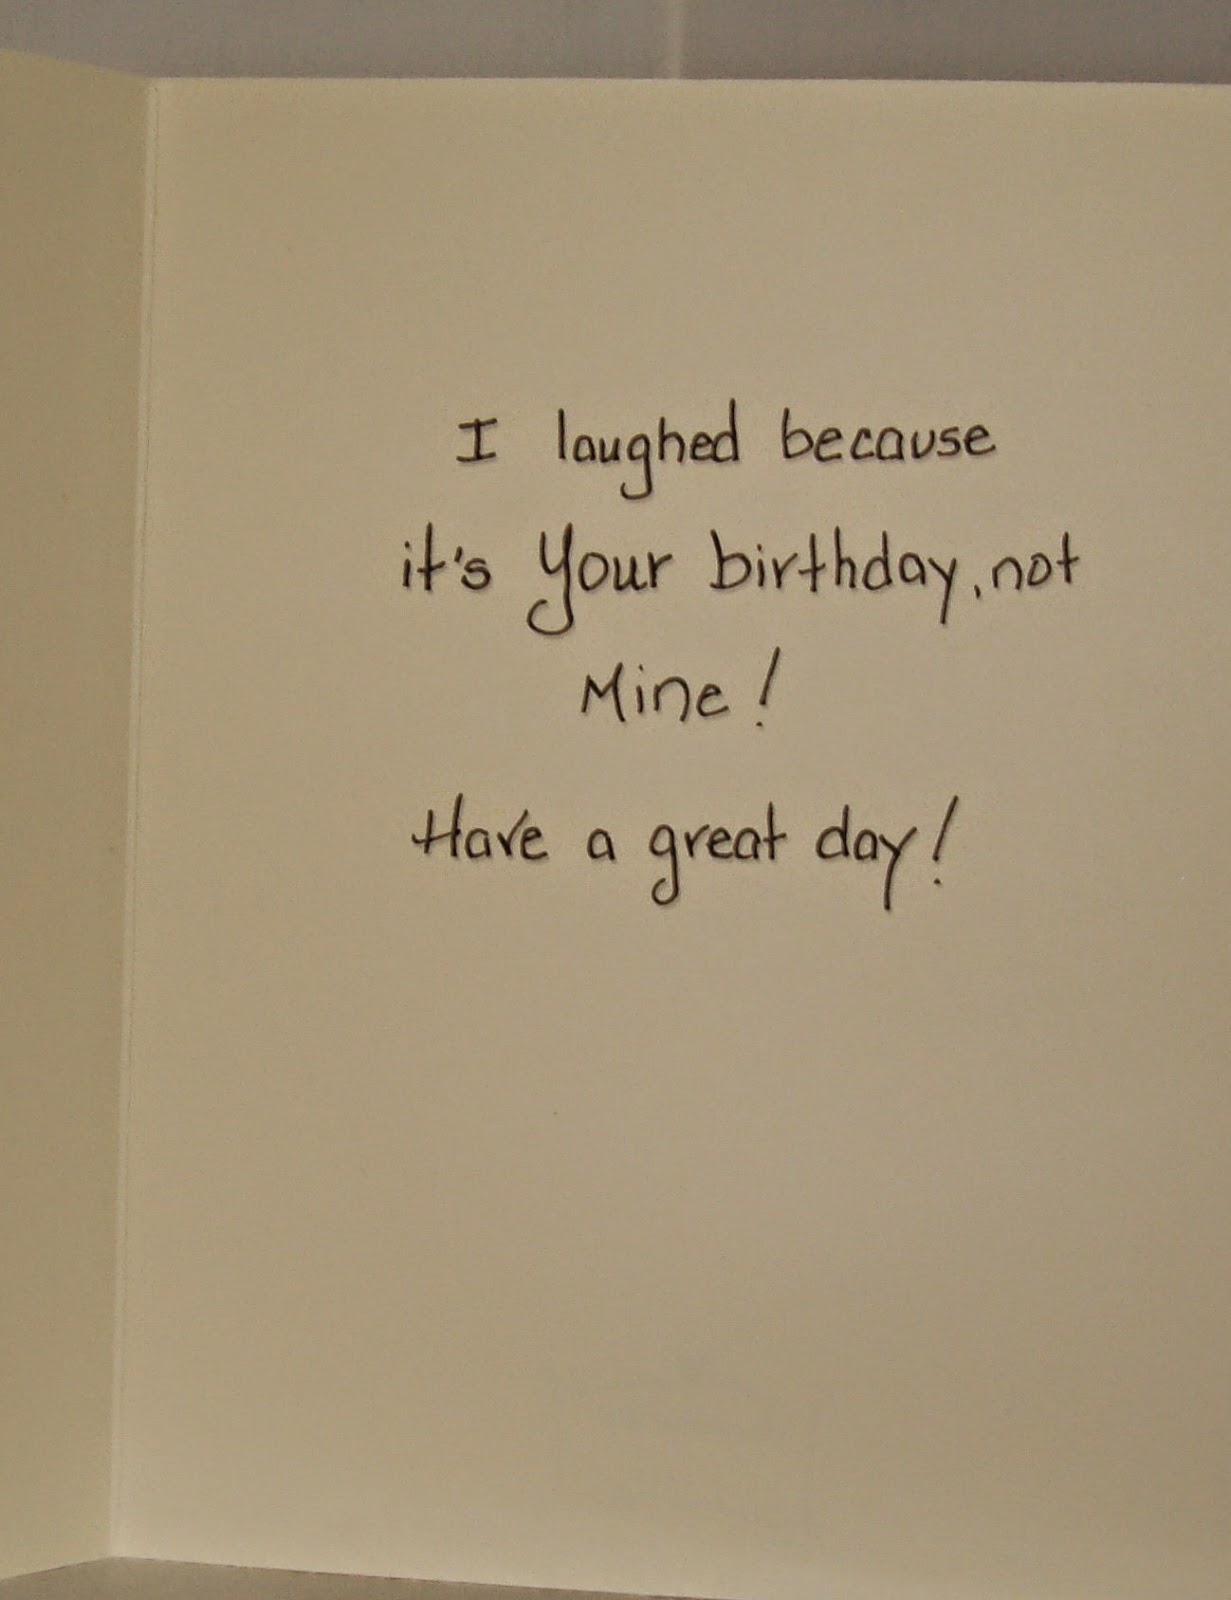 I laughed because
it's Your birthday, not
Mine!
Have a great day!